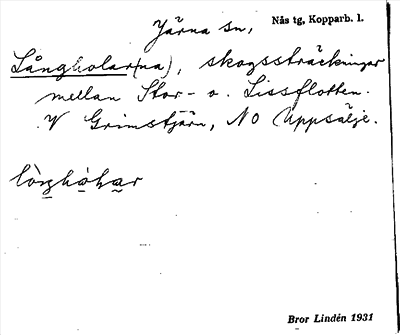 Järna sn, Nås tg, Kopparb. l.
Långholar(na), skogssträckningar
mellan Stor- o. Lissflotten.
V Grimstjärn, NO Uppsälje.
Bror Lindén 1931